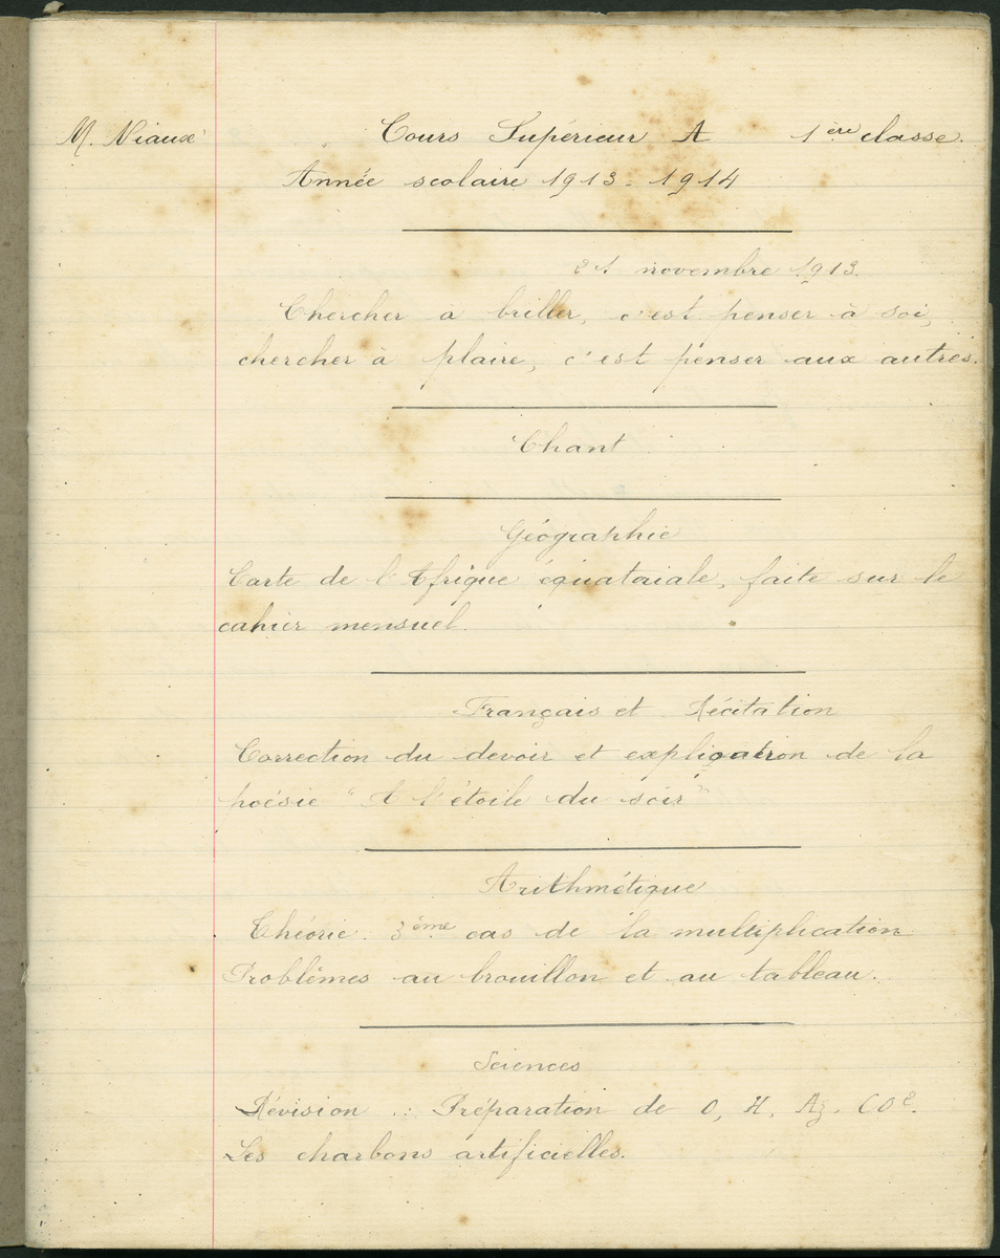 M. Niaux
Cours Supérieur A 1ère classe.
Année scolaire 1913-1914
21 novembre 1913.
Chercher à briller, c'est penser à soi,
chercher à plaire, c'est penser aux autres.
Chant
Géographie
Carte de l'Afrique équatoriale, faite sur le
cahier mensuel.
Français et Récitation
Correction du devoir et explication de la
poésie "A l'étoile du soir"
Arithmétique
Théorie. 3ème cas de la multiplication
Problèmes au brouillon et au tableau.
Sciences
Révision : Préparation de O, H, Az, CO².
Les charbons artificielles.